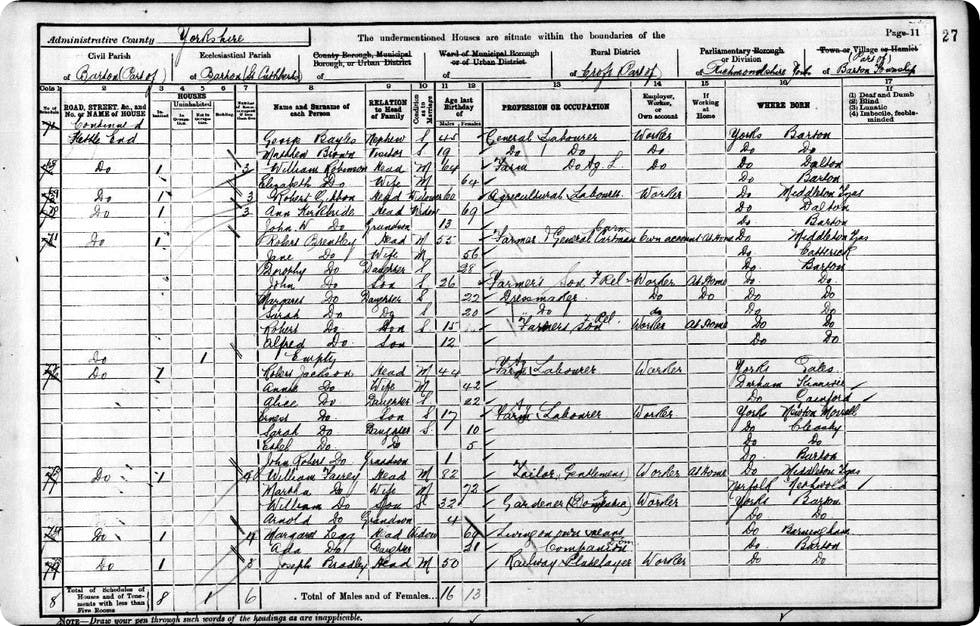 Administrative County Yorkshire
The undermentioned Houses are situate within the boundaries of the
Page 11
27
Civil Parish
of Barton (Part of)
Ecclesiastical Parish
of Barton St Cuthberts
County Borough, Municipal Borough, or Urban District
Ward of Municipal Borough or of Urban District
Rural District
of Croft Part of
Parliamentary Borough or Division
of Richmondshire
Town or Village or Hamlet
Part of
Barton Township
Cols 1 2 3 4 5 6 7 8 9 10 11 12 13 14 15 16 17
No. of Schedule
ROAD, STREET, &c., and No. or NAME of HOUSE
HOUSES
Inhabited
Uninhabited
In Occupation
Not in Occupation
Building
Name and Surname of each Person
RELATION to Head of Family
Condition as to Marriage
Age last Birthday of
Males Females
PROFESSION OR OCCUPATION
Employer, Worker, or Own account
If Working at Home
WHERE BORN
(1) Deaf and Dumb
(2) Blind
(3) Lunatic
(4) Imbecile, feeble-minded
Continued
Kettle End George Bayles Nephew S 45 General Labourer Worker Yorks Barton
Matthew Brown Visitor S 19 Do Do Do Do Do
Do 1 3 William Robinson Head M 64 Farm Do Ag. L Do Do Dalton
Elizabeth Do Wife M 64 Do Barton
Do 1 3 Robert Gibbon Head Widower 60 Agricultural Labourer Worker Do Middleton Tyas
Do 1 3 Ann Kirkbride Head Widow 69 Do Dalton
John W Do Grandson 13 Do Barton
Do 1 Robert Brentley Head M 55 Farmer & General Cartman Own account At Home Do Middleton Tyas
Jane Do Wife M 56 Do Catterick
Dorothy Do Daughter S 28 Do Barton
John Do Son S 26 Farmer's Son Rel Worker At Home Do Do
Margaret Do Daughter S 22 Dressmaker Do Do Do Do
Sarah Do Do S 20 Do do Do Do
Robert Do Son S 15 Farmers Son Rel Worker At Home Do Do
Alfred Do Son 12 Do Do
Do 1 Empty
Do 1 Robert Jackson Head M 44 Ag Labourer Worker Yorks
Annie Do Wife M 42 Durham
Alice Do Daughter S 22 Do Gainford
Ernest Do Son S 17 Farm Labourer Worker Yorks Newton Morrell
Sarah Do Daughter S 10 Do Cleasby
Do Do 5 Do Do
John Robert Do Grandson 1 Do Barton
Do 1 4 William Head M 82 Tailor, Gentlemens Worker At Home Do Middleton Tyas
Martha Do Wife M 72 Norfolk
William Do Son S 32 Gardener Worker Yorks Barton
Arnold Do Grandson 4 Do Do
Do 1 4 Margaret Head Widow 69 Living on own means Do Barningham
Ada Do Daughter 21 Companion Do Barton
Do 1 5 Joseph Bradley Head M 50 Railway Platelayer Worker Do Do
8 Total of Schedules of Houses and of Tenements with less than Five Rooms 8 1 6 Total of Males and of Females... 16 13
NOTE—Draw your pen through such words of the headings as are inapplicable.